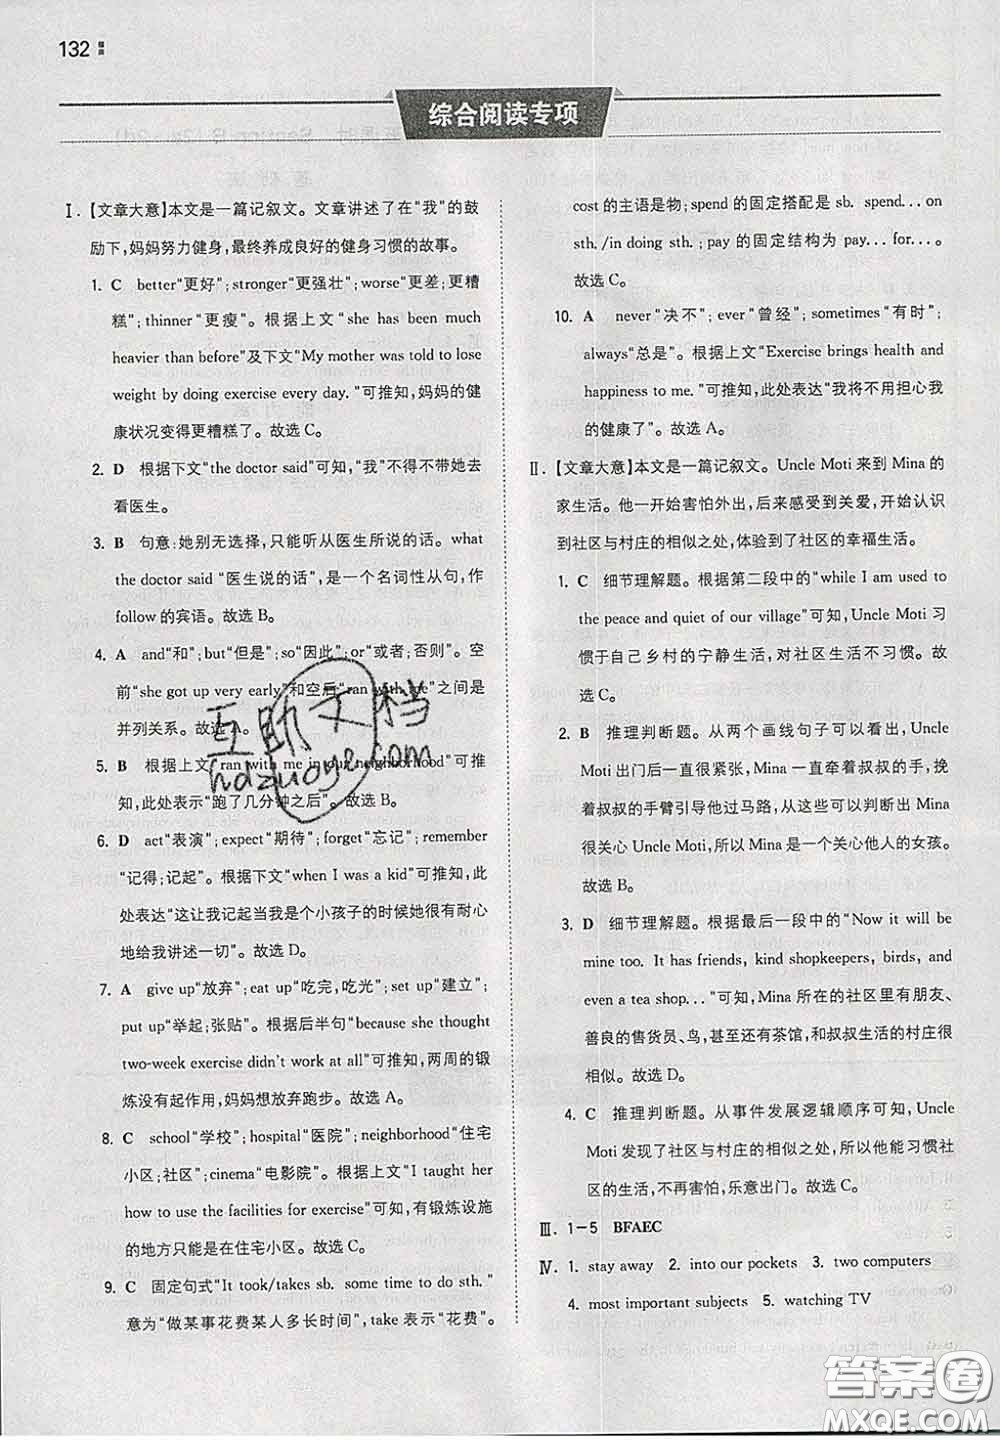 132
综合阅读专项
Ⅰ.【文章大意】本文是一篇记叙文。文章讲述了在“我”的鼓
励下,妈妈努力健身,最终养成良好的健身习惯的故事。
1. C better“更好”;stronger“更强壮”;worse“更差;更糟
糕”;thinner“更瘦”。根据上文“she has been much
heavier than before”及下文“My mother was told to lose
weight by doing exercise every day.”可推知,妈妈的健
康状况变得更糟糕了。故选C。
2. D 根据下文“the doctor said”可知,“我”不得不带她去
看医生。
3. B 句意:她别无选择,只能听从医生所说的话。what
the doctor said “医生说的话”,是一个名词性从句,作
follow的宾语。故选B。
4. A and“和”;but“但是”;so“因此”;or“或者;否则”。空
前“she got up very early”和空后“ran with me”之间是
并列关系。故选A。
5. B 根据上文“ran with me in our neighborhood”可
推知,此处表示“跑了几分钟之后”。故选B。
6. D act“表演”;expect“期待”;forget“忘记”;remember
“记得;记起”。根据下文“when I was a kid”可推知,此
处表达“这让我记起当我是个小孩子的时候她很有耐心
地给我讲述一切”。故选D。
7. A give up“放弃”;eat up“吃完,吃光”;set up“建立”;
put up“举起;张贴”。根据后半句“because she thought
two-week exercise didn't work at all”可推知,两周的锻
炼没有起作用,妈妈想放弃跑步。故选A。
8. C school“学校”;hospital“医院”;neighborhood“住宅
小区;社区”;cinema“电影院”。根据上文“I taught her
how to use the facilities for exercise”可知,有锻炼设施
的地方只能是在住宅小区。故选C。
9. C 固定句式“It took/takes sb. some time to do sth.”
意为“做某事花费某人多长时间”,take表示“花费”。
cost的主语是物;spend的固定搭配是sb. spend...on
sth./in doing sth.;pay的固定结构为pay...for...。
故选C。
10. A never“决不”;ever“曾经”;sometimes“有时”;
always“总是”。根据上文“Exercise brings health and
happiness to me.”可推知,此处表达“我将不用担心我
的健康了”。故选A。
Ⅱ.【文章大意】本文是一篇记叙文。Uncle Moti来到Mina的
家生活。他一开始害怕外出,后来感受到关爱,开始认识
到社区与村庄的相似之处,体验到了社区的幸福生活。
1. C 细节理解题。根据第二段中的“while I am used to
the peace and quiet of our village”可知,Uncle Moti习
惯于自己乡村的宁静生活,对社区生活不习惯。故
选C。
2. B 推理判断题。从两个画线句子可以看出,Uncle
Moti出门后一直很紧张,Mina一直牵着叔叔的手,挽
着叔叔的手臂引导他过马路,从这些可以判断出Mina
很关心Uncle Moti,所以Mina是一个关心他人的女孩。
故选B。
3. D 细节理解题。根据最后一段中的“Now it will be
mine too. It has friends, kind shopkeepers, birds, and
even a tea shop...”可知,Mina所在的社区里有朋友、
善良的售货员、鸟,甚至还有茶馆,和叔叔生活的村庄很
相似。故选D。
4. C 推理判断题。从事件发展逻辑顺序可知,Uncle
Moti发现了社区与村庄的相似之处,所以他能习惯社
区的生活,不再害怕,乐意出门。故选C。
Ⅲ. 1-5 BFAEC
Ⅳ. 1. stay away 2. into our pockets 3. two computers
4. most important subjects 5. watching TV
互助文档
hdzuoye.com
答案圈
MXQE.COM